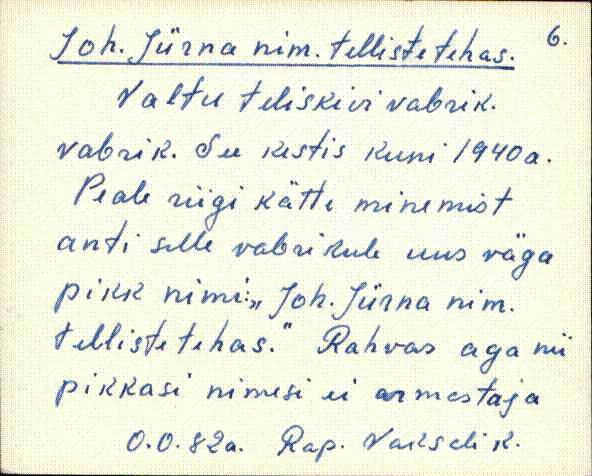 6.
Joh. Jürna nim. tellistetehas.
Valtu teliskivi vabrik.
vabrik. See kestis kuni 1940a.
Peale riigi kätte minemist
anti selle vabrikule uus väga
pikk nimi: „Joh. Jürna nim.
tellistetehas." Rahvas aga nii
pikkasi nimesi ei armasta ja
0.0.82a. Rap. Vakselik.